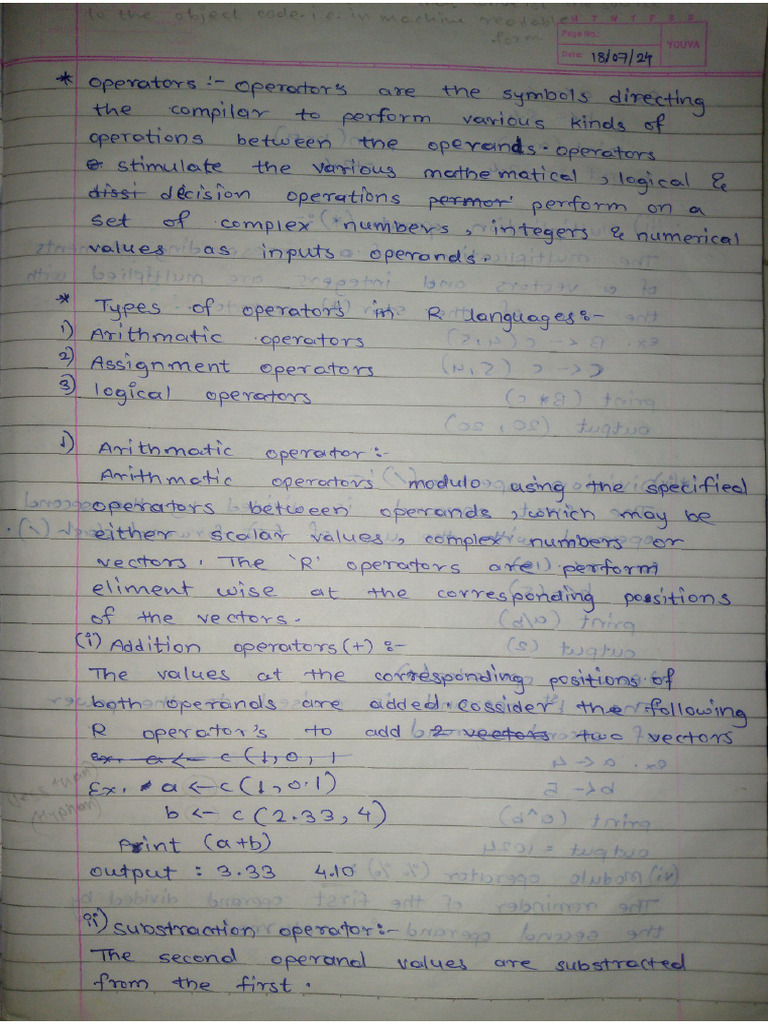 to the object code. i.e. in machine readable
form
M T W T F S S
Page No.:
YOUVA
Date: 18/07/24
* operators :- operator's are the symbols directing
the compilar to perform various kinds of
operations between the operands. operators
stimulate the various mathematical, logical &
dissi decision operations permor perform on a
set of complex numbers, integers & numerical
values as inputs operands.
* Types of operators in R languages:-
1) Arithmatic operators
2) Assignment operators
3) logical operators
1) Arithmatic operator:-
Arithmatic operators modulo using the specified
operators between operands, which may be
either scalar values, complex numbers or
vectors. The 'R' operators are perform
eliment wise at the corresponding positions
of the vectors.
(i) Addition operators (+) :-
The values at the corresponding positions of
both operands are added. cossider the following
R operator's to add 2 vectors two vectors
Ex. a <- c(1, 0, 1
Ex. a <- c(1, 0.1)
b <- c(2.33, 4)
Print (a+b)
output : 3.33 4.10
ii) substraction operator:-
The second operand values are substracted
from the first.